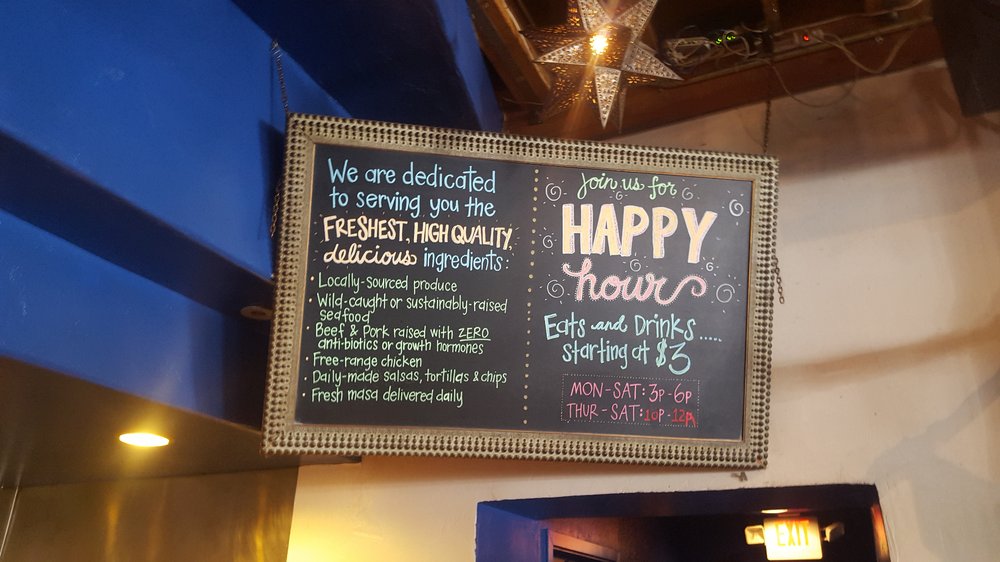 We are dedicated
to serving you the
FRESHEST, HIGH QUALITY,
delicious ingredients:
• Locally-sourced produce
• Wild-caught or sustainably-raised
seafood
• Beef & Pork raised with ZERO
anti-biotics or growth hormones
• Free-range chicken
• Daily-made salsas, tortillas & chips
• Fresh masa delivered daily
Join us for
HAPPY
hour
Eats and Drinks.....
starting at $3
MON-SAT: 3P-6P
THUR-SAT: 10P-12A
EXIT